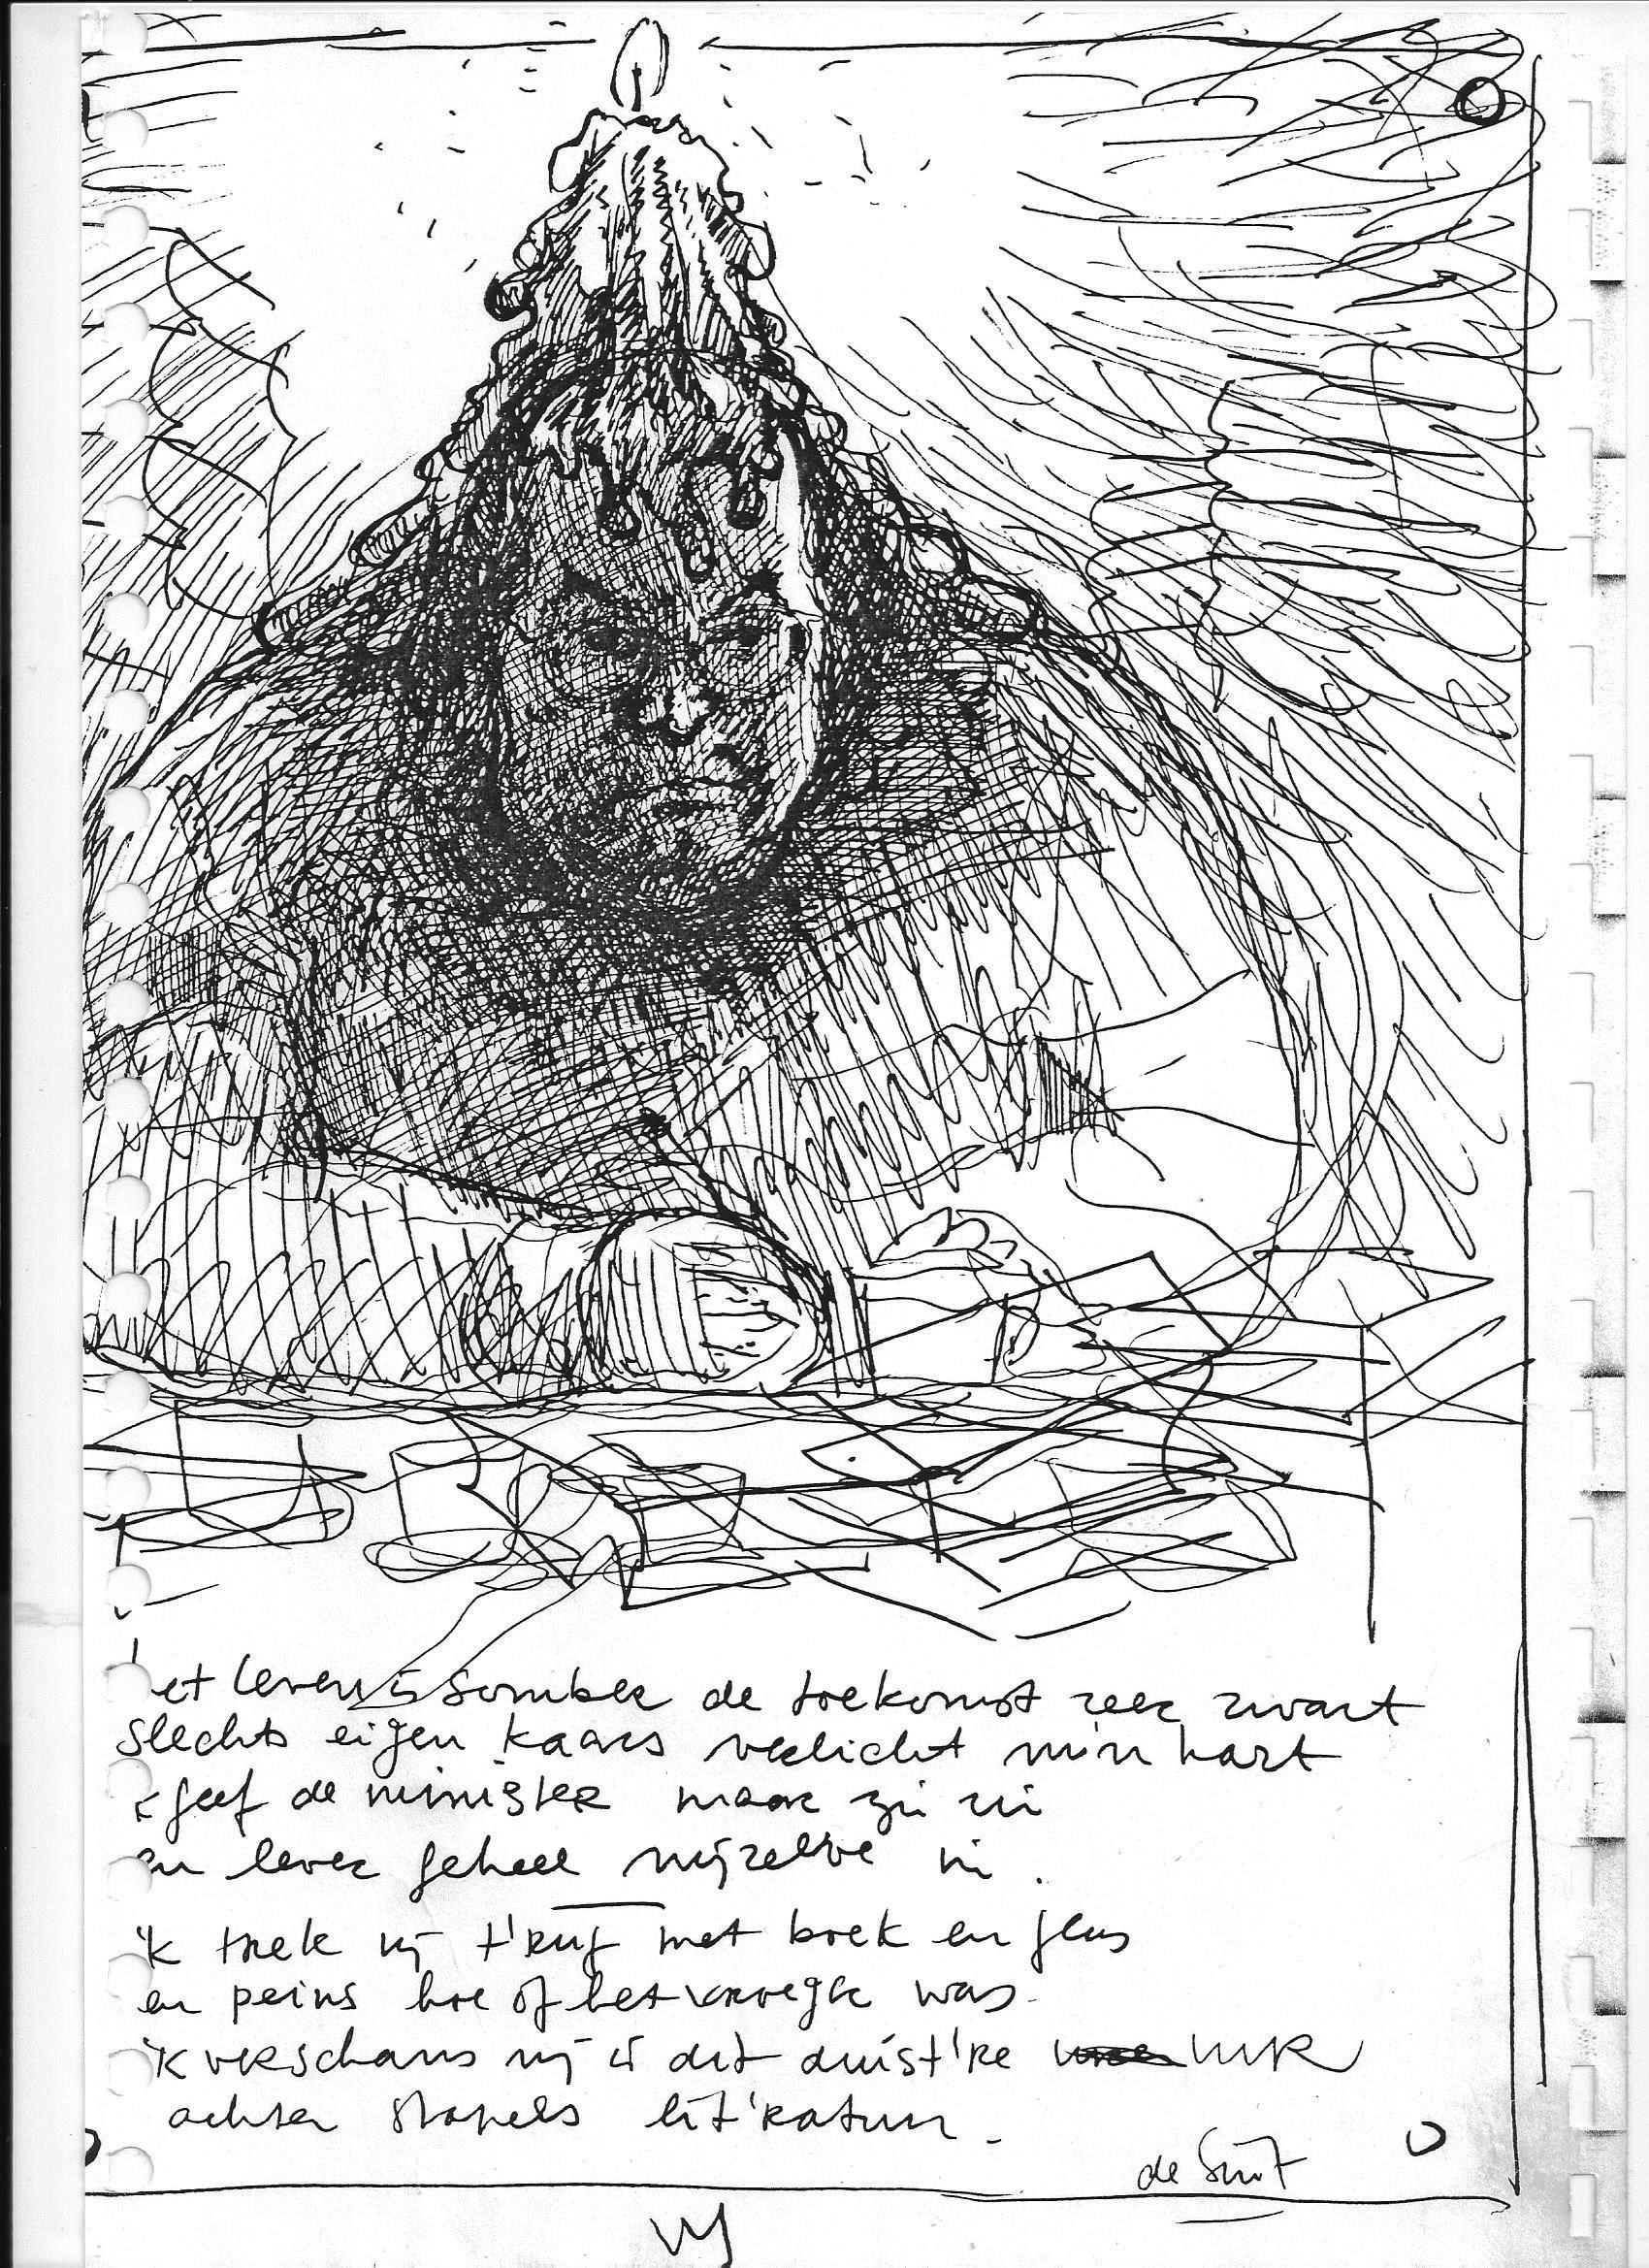 het leven is somber de toekomst zeer zwart
slechts eigen kaars verlicht mijn hart
'k geef de minister maar zijn zin
en lever geheel mijzelve in.
'k trek mij t'rug met boek en glas
en peins hoe of het vroeger was.
'k verschans mij in dit duist're uur
achter stapels lit'ratuur.
de Smit